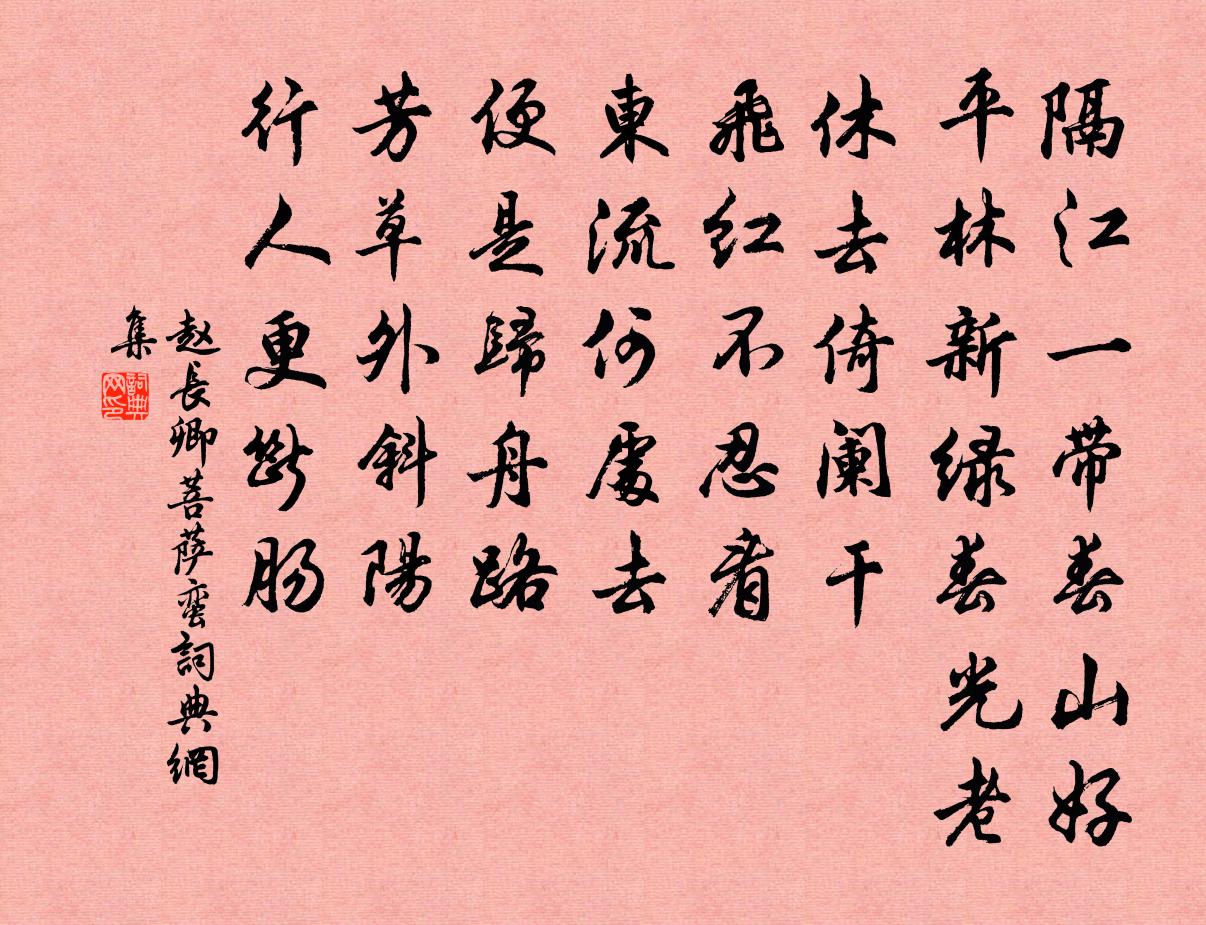 隔江一带春山好
平林新绿春光老
休去倚阑干
飛红不忍看
東流何處去
便是歸舟路
芳草外斜陽
行人更斷肠
赵長卿菩萨蛮詞典網
集
詞典
网印